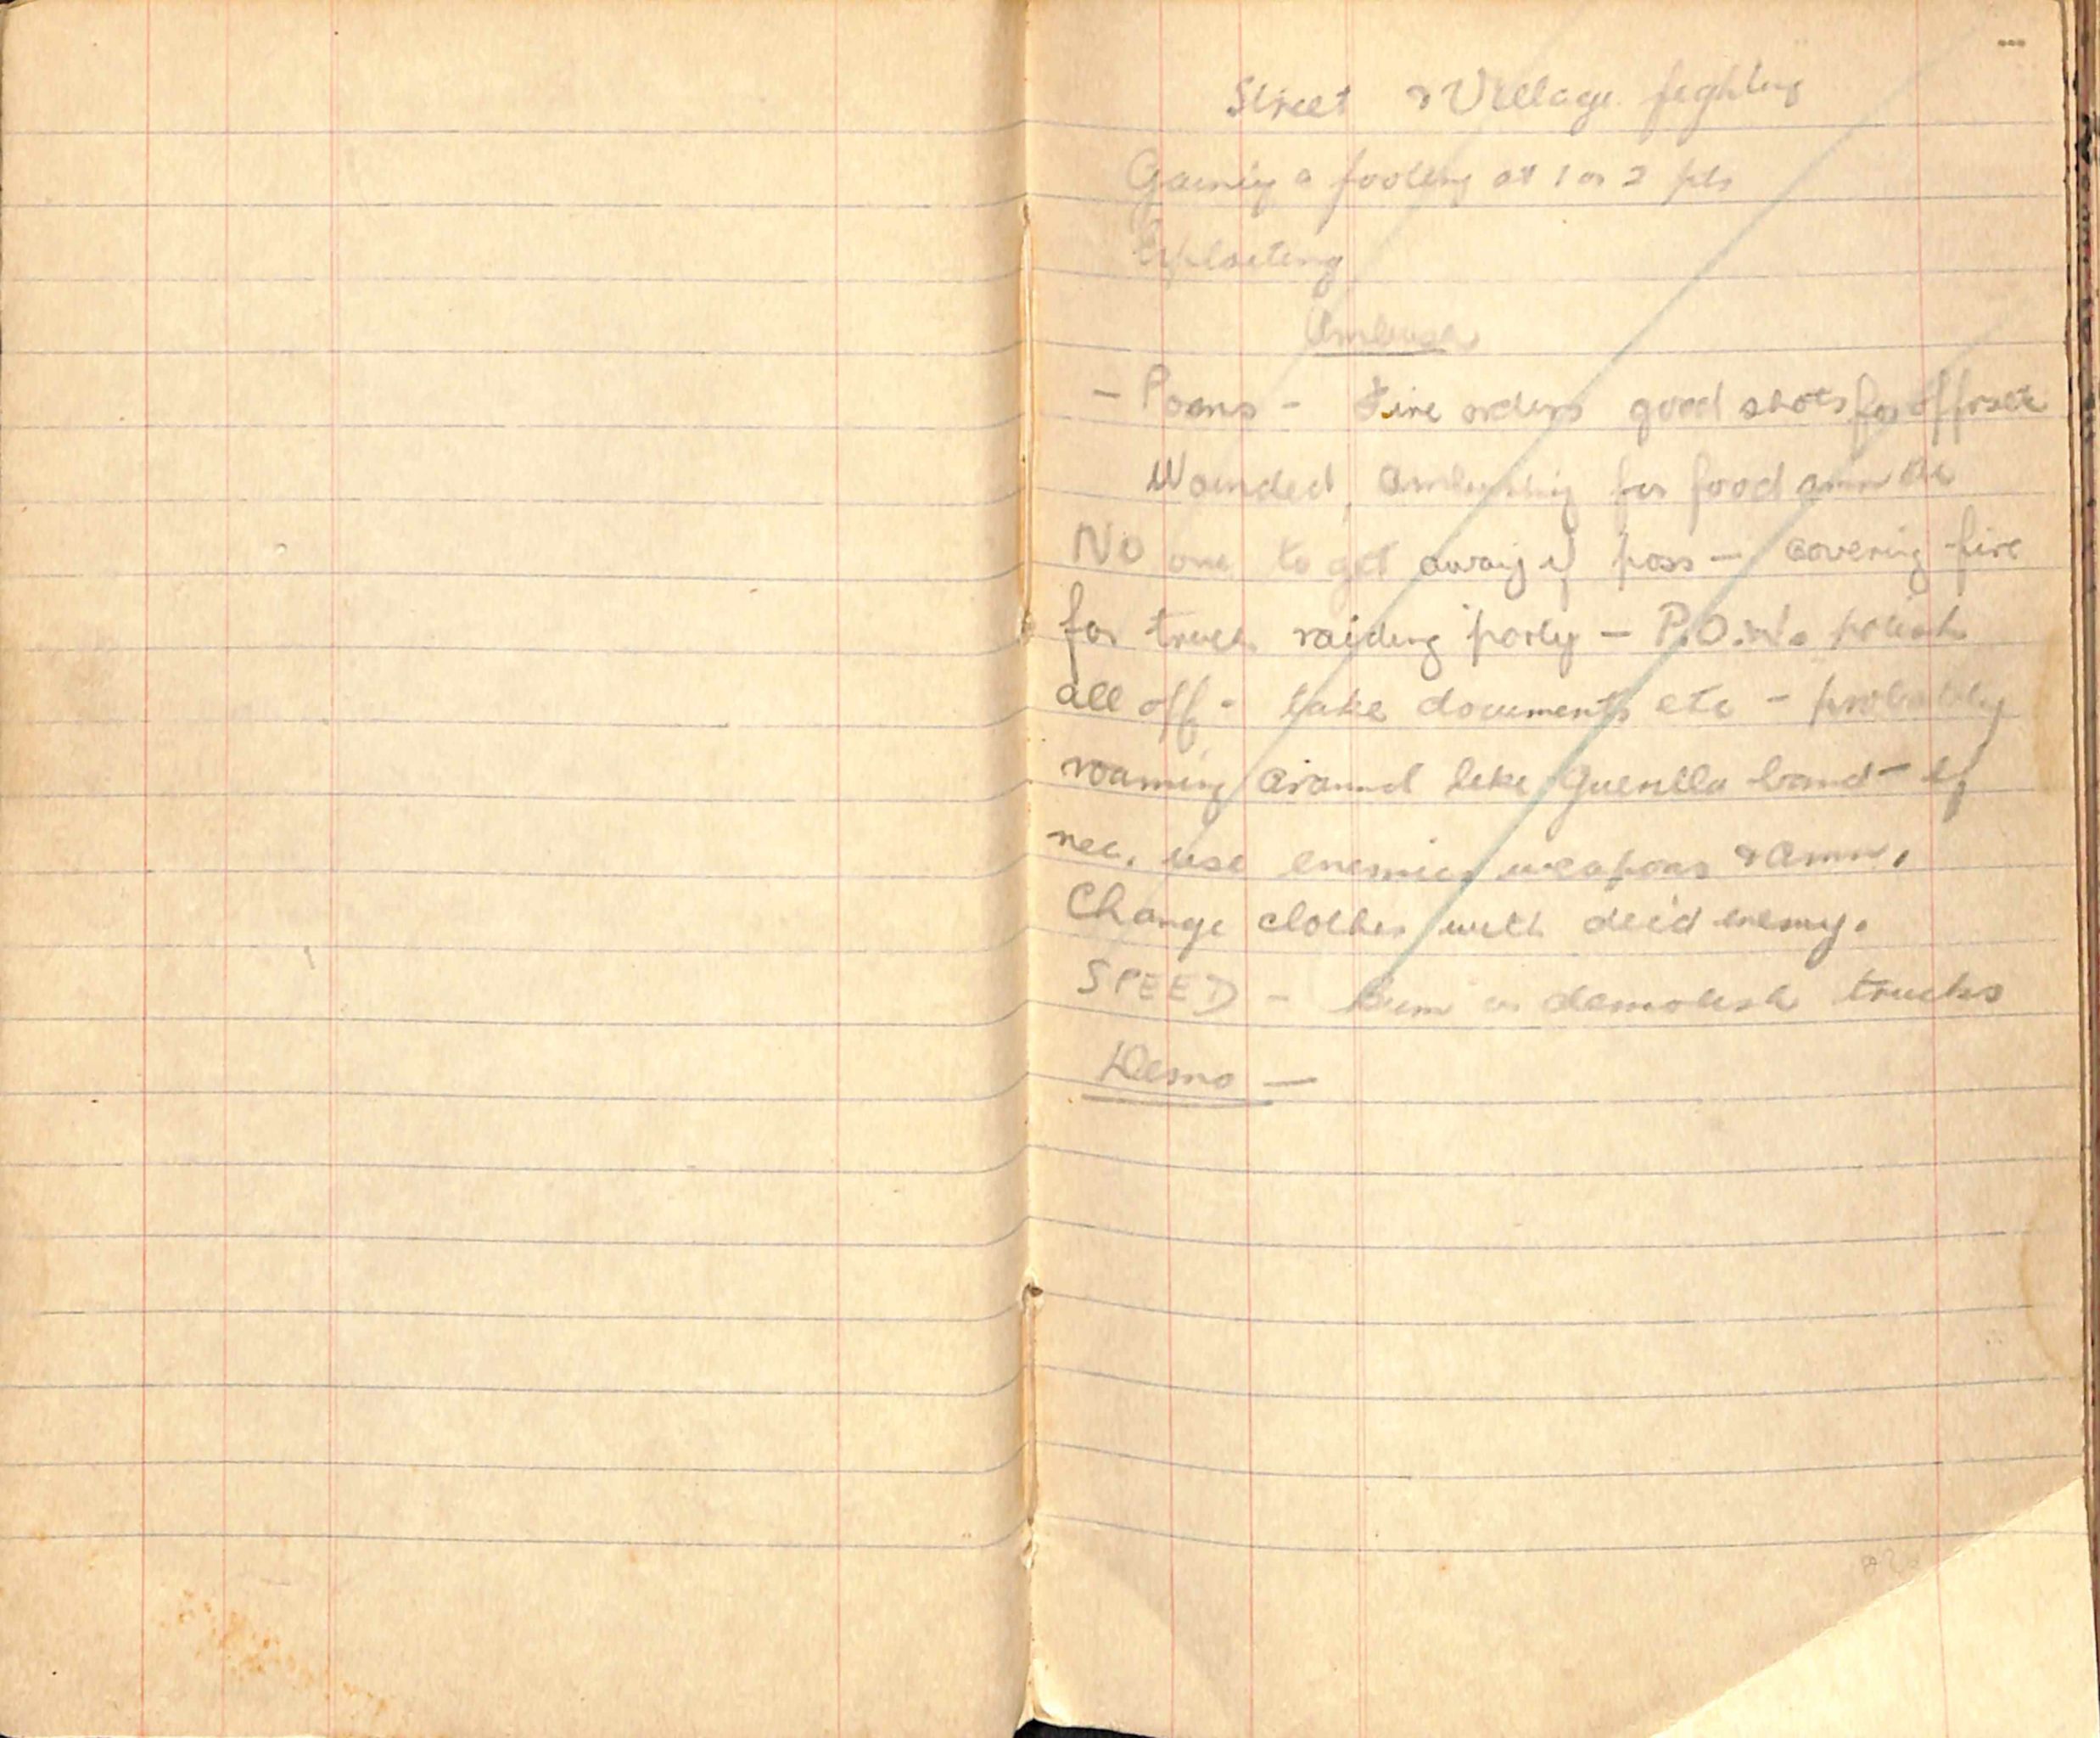 Street & Village fighting
Gaining a footing at 1 or 2 pts
Exploiting
Ambush
- Posns - Fire orders good shots for
Wounded, Ambushing for food amn etc
No one to get away if poss - covering fire
for truck raiding party - P.O.W's polish
all off - take documents etc - probably
roaming around like Guerilla band - if
nec. use enemies weapons & amn.
Change clothes with dead enemy.
SPEED - burn or demolish trucks
Demo -